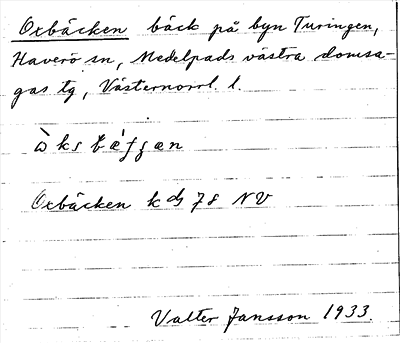 Oxbäcken bäck på byn Turingen,
Haverö sn, Medelpads västra domsa-
gas tg, Västernorrl. l.
Oxbäcken k dg 78 NV
Valter Jansson 1933.